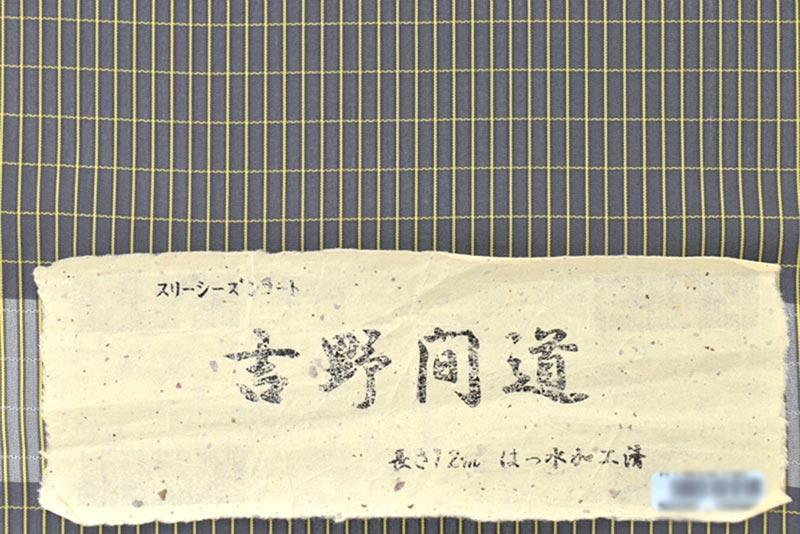 スリーシーズンコート
吉野間道
長さ12m はっ水加工済